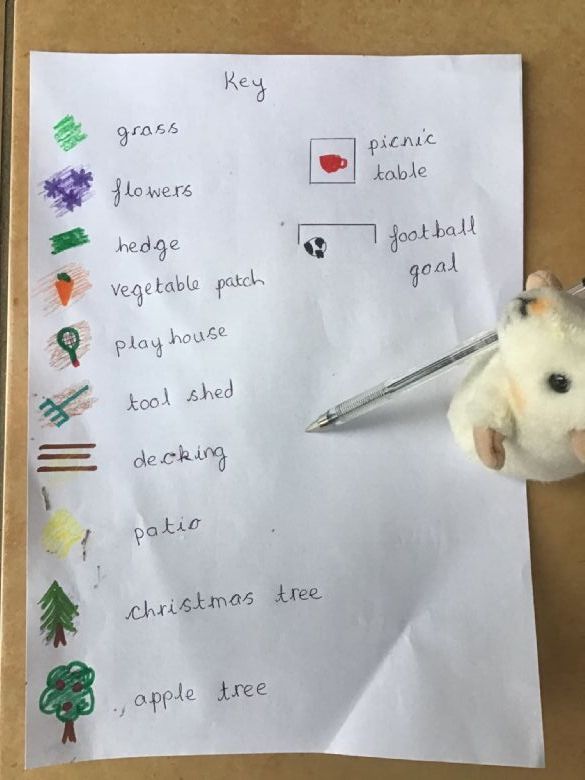 Key
grass
flowers
hedge
vegetable patch
playhouse
tool shed
decking
patio
christmas tree
apple tree
picnic
table
football
goal